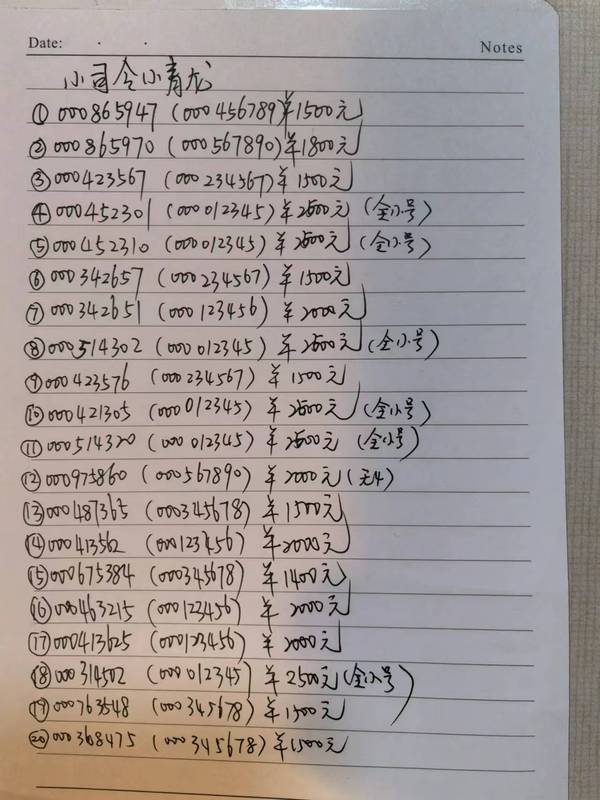 Date: · ·
Notes
小司令小青龙
① 000865947 (000456789) ¥1500元
② 000865970 (000567890) ¥1800元
③ 000423567 (000234567) ¥1500元
④ 000452301 (000012345) ¥2500元 (全小号)
⑤ 000452310 (000012345) ¥2500元 (全小号)
⑥ 000342657 (000234567) ¥1500元
⑦ 000342651 (000123456) ¥2000元
⑧ 000514302 (000012345) ¥2500元 (全小号)
⑨ 000423576 (000234567) ¥1500元
⑩ 000421305 (000012345) ¥2500元 (全小号)
⑪ 000514320 (000012345) ¥2500元 (全小号)
⑫ 000975860 (000567890) ¥2000元 (无4)
⑬ 000487365 (000345678) ¥1500元
⑭ 000413562 (000123456) ¥2000元
⑮ 000675384 (000345678) ¥1400元
⑯ 000463215 (000123456) ¥2000元
⑰ 000413625 (000123456) ¥2000元
⑱ 000314502 (000012345) ¥2500元 (全小号)
⑲ 000763548 (000345678) ¥1500元
⑳ 000368475 (000345678) ¥1500元